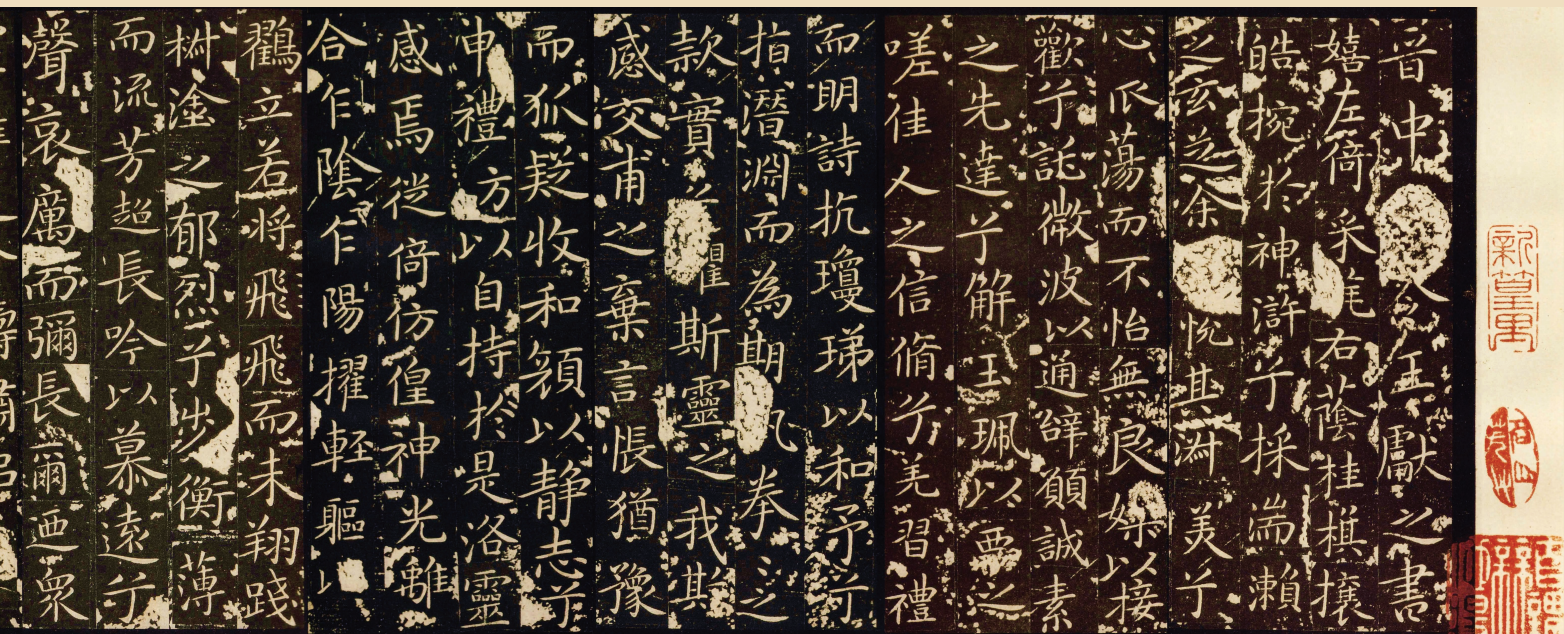 晉中令王獻之書
嬉左倚采旄右蔭桂棋攘
皓捥於神滸兮採湍瀨
之玄芝余悅其淑美兮
心蕩而不怡無良媒以接
歡兮託微波以通辭願誠素
之先達兮解玉珮以要之
嗟佳人之信脩兮羌習禮
而明詩抗瓊珶以和予兮
指潛淵而為期拳之
款實兮懼斯靈之我欺
感交甫之棄言悵猶豫
而狐疑收和顏以靜志兮
申禮方以自持於是洛靈
感焉徙倚仿偟神光離
合乍陰乍陽擢輕軀以
鸛立若將飛飛而未翔踐
椒塗之郁烈兮步衡薄
而流芳超長吟以慕遠兮
聲哀厲而彌長爾迺眾